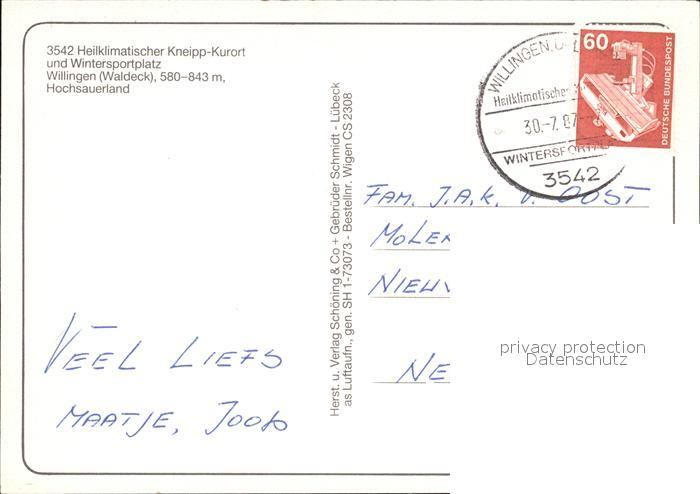 3542 Heilklimatischer Kneipp-Kurort
und Wintersportplatz
Willingen (Waldeck), 580–843 m,
Hochsauerland
VEEL LIEFS
MAATJE, JOOP
Herst. u. Verlag Schöning & Co + Gebrüder Schmidt - Lübeck
as Luftaufn., gen. SH 1-73073 - Bestellnr. Wigen CS 2308
WILLINGEN
Heilklimatischer
30.-7.87
WINTERSPORTPLA
3542
60
DEUTSCHE BUNDESPOST
FAM. J.A.K. V. OOST
MOLE
NIEUW
NE
privacy protection
Datenschutz